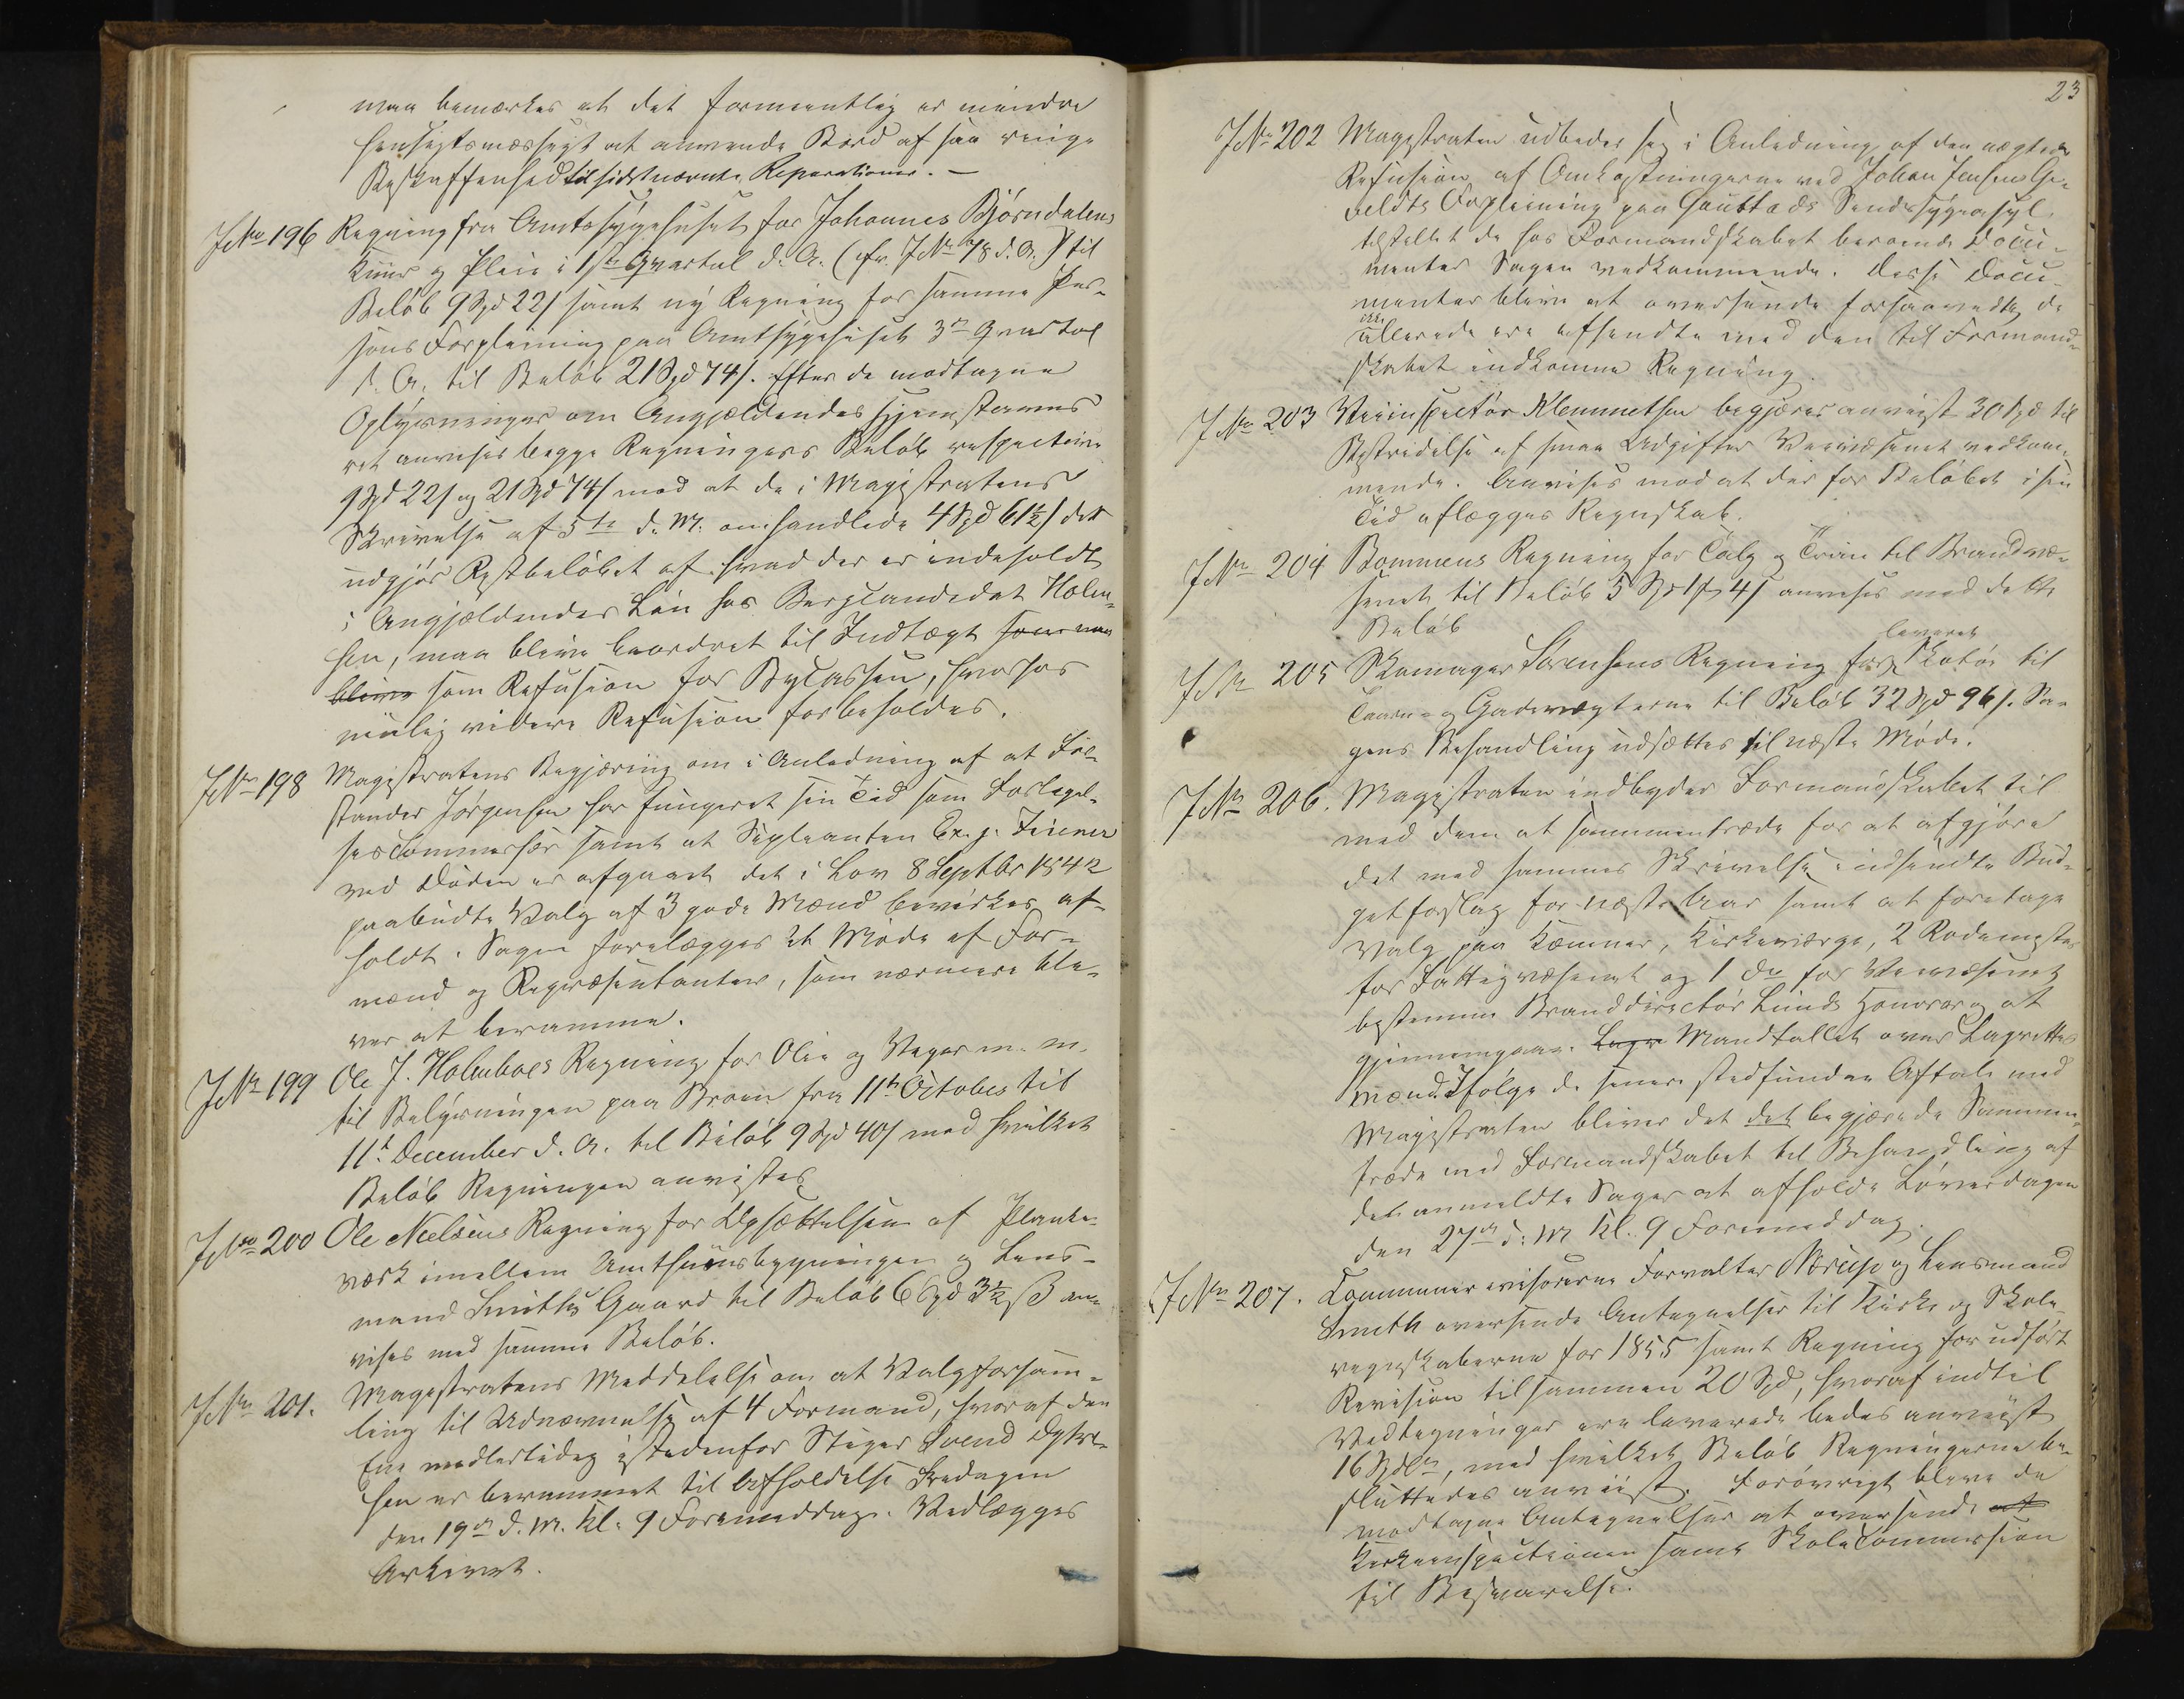 maa bemærkes at det formeentlig er mindre
hensigtsmæssigt at anvende Bord af saa ringe
Beskaffenhed til sidstnævnte Reparationer. —
JNr 196 Regning fra Amtssygehuset for Johannes Bjørndalens
Kuur og Pleie i 1ste Qvartal d. A. (cfr. JNr 78 d. A.) til
Beløb 9 Spd 22 s samt ny Regning for samme Per-
sons Forpleining paa Amtsygehuset 3die Qvartal
d. A. til Beløb 21 Spd 74 s. Efter de modtagne
Oplysninger om Angjældendes Hjemstavns
ret anvises begge Regningers Beløb respective
9 Spd 22 s og 21 Spd 74 s mod at de i Magistratens
Skrivelse af 5te d. M. omhandlede 4 Spd 61½ s det
udgjør Restbeløbet af hvad der er indeholdt
i Angjældendes Løn hos Bergcandidat Holm-
sen, maa blive beordret til Indtægt som maa
blive som Refusion for Bycassen, hvorhos
mulig videre Refusion forbeholdes.
JNr 198 Magistratens Begjæring om i Anledning af at For-
stander Jørgensen har fungeret sin Tid som Forligel-
sesCommissær samt at Suppleanten Chr. J.
ved Døden er afgaaet det i Lov 8 Septbr 1842
paabudte Valg af 3 gode Mænd bevirkes af-
holdt. Sagen forelægges et Møde af For-
mænd og Repræsentanter, som nærmere bli-
ver at beramme.
JNr 199 Ole J. Holmboes Regning for Olie og Væger m. m.
til Belysningen paa Broen fra 11te October til
11te December d. A. til Beløb 9 Spd 40 s med hvilket
Beløb Regningen anvistes
JNo 200 Ole Nielsens Regning for Opsættelsen af Planke-
værk imellem Amthuusbygningen og Lens-
mand Smiths Gaard til Beløb 6 Spd 3½ ß an-
vises med samme Beløb.
JNr 201. Magistratens Meddelelse om at Valgforsam-
ling til Udnævnelse af 4 Formænd, hvoraf den
Ene midlertidig istedenfor Stiger Svend
sen er berammet til Afholdelse Fredagen
den 19de d. M. Kl. 9 Formiddag. Vedlægges
Arkivet.
23
JNr 202 Magistraten udbeder sig i Anledning af den nægtede
Refusion af Omkostningerne ved Johan Jensen Ge-
veldts Forpleining paa Gaustads Sindssygeasyl
tilstillet de hos Formandskabet beroende Docu-
menter Sagen vedkommende. Disse Docu-
menter blive at oversende forsaavidt de
ikke
allerede ere afsendte med den til Formand-
skabet indkomne Regning.
JNr 203 Veiinspectør Klemmetsen begjærer anviist 30 Spd til
Bestridelse af smaa Udgifter Veivæsenet vedkom-
mende. Anvises mod at der for Beløbet i sin
Tid aflægges Regnskab.
JNr 204 Bommens Regning for Talg og Tran til Brandvæ-
senet til Beløb 5 Spd 1 ort 4 s anvises med dette
Beløb
leveret
JNr 205 Skomager Sørensens Regning for Skotøi til
Taarn- og Gadevægterne til Beløb 32 Spd 96 s. Sa-
gens Behandling udsættes til næste Møde.
JNr 206. Magistraten indbyder Formandskabet til
med dem at sammentræde for at afgjøre
det med sammes Skrivelse indsendte Bud-
getforslag for næste Aar samt at foretage
Valg paa Kæmner, Kirkeværge, 2 Rodemestre
for Fattigvæsenet og 1 do for Veivæsenet
bestemme Branddirectør Lunds Honorar og at
gjennemgaae Lagr Mandtallet over Lagrettes
mænd. Ifølge de senere stedfundne Aftale med
Magistraten bliver det det begjærede Sammen-
træde med Formandskabet til Behandling af
de anmeldte Sager at afholde Løverdagen
den 27de d. M Kl. 9 Formiddag.
JNr 207. Communerevisorerne Forvalter Nørup og Lensmand
Smith oversende Antegnelser til Kirke og Skole-
regnskaberne for 1855 samt Regning for udført
Revision tilsammen 20 Spd, hvoraf indtil
Vedtegninger ere leverede bedes anviist
16 Spdlr, med hvilket Beløb Regningerne be-
sluttedes anviist. Forøvrigt blive de
modtagne Antegnelser at oversende at
Kirkeinspectionen samt SkoleCommission
til Besvarelse.